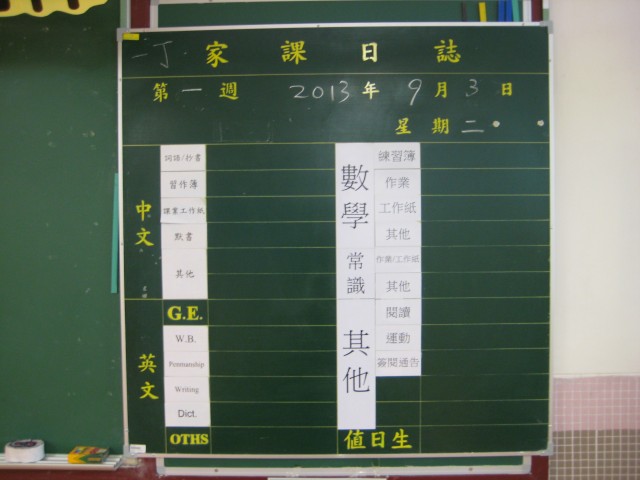 一丁 家課日誌
第一週 2013年9月3日
星期二
中文
詞語/抄書
習作簿
課業工作紙
默書
其他
英文
G.E.
W.B.
Penmanship
Writing
Dict.
OTHS
數學
練習簿
作業
工作紙
其他
常識
作業/工作紙
其他
其他
閱讀
運動
簽閱通告
值日生